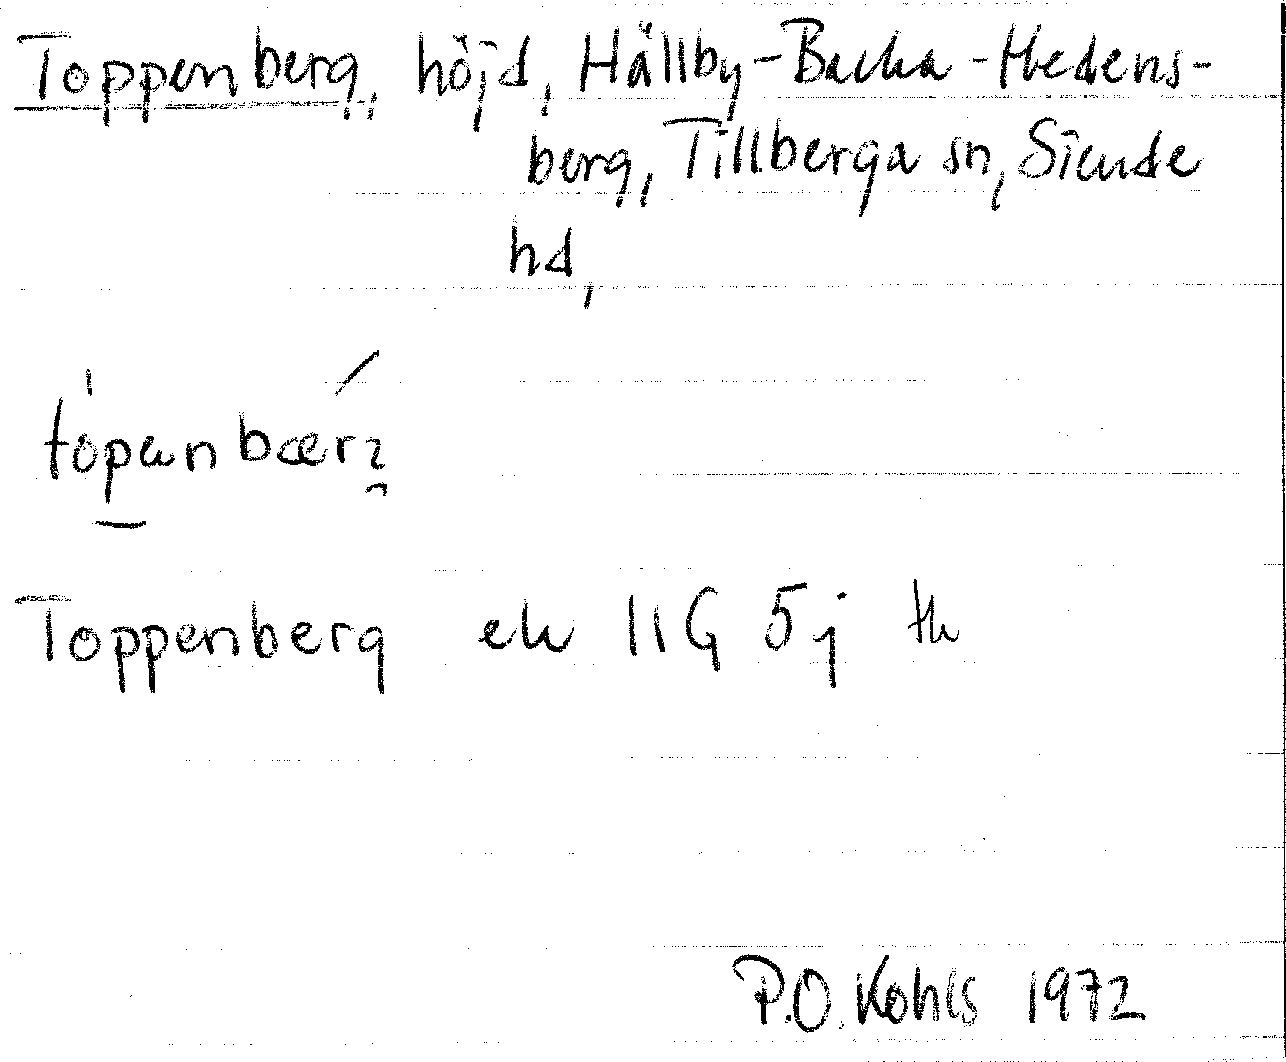 Toppenberg, höjd, Hällby-Backa-Hedens-
berg, Tillberga sn, Siende
hd,
Toppenberg ek 11G 5j th
P.O. Kohls 1972